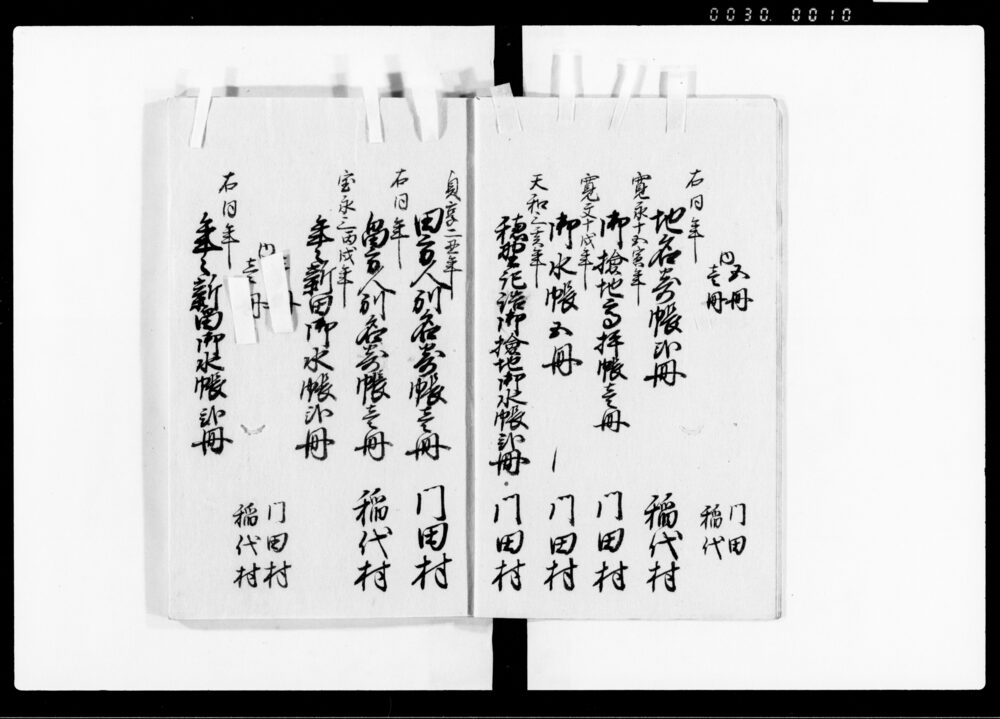 0030. 0010
内五冊 門田
壱冊 稲代
右同年
地名寄帳弐冊 稲代村
寛永十五寅年
御検地高拝帳壱冊 門田村
寛文十戌年
御水帳五冊 門田村
天和三亥年
御検地御水帳弐冊 門田村
貞享二丑年
田方人別名寄帳壱冊 門田村
右同年
畠方人別名寄帳壱冊 稲代村
宝永三丙戌年
年々新田御水帳弐冊
内 門田村
壱冊 稲代村
右同年
年々新畠御水帳弐冊